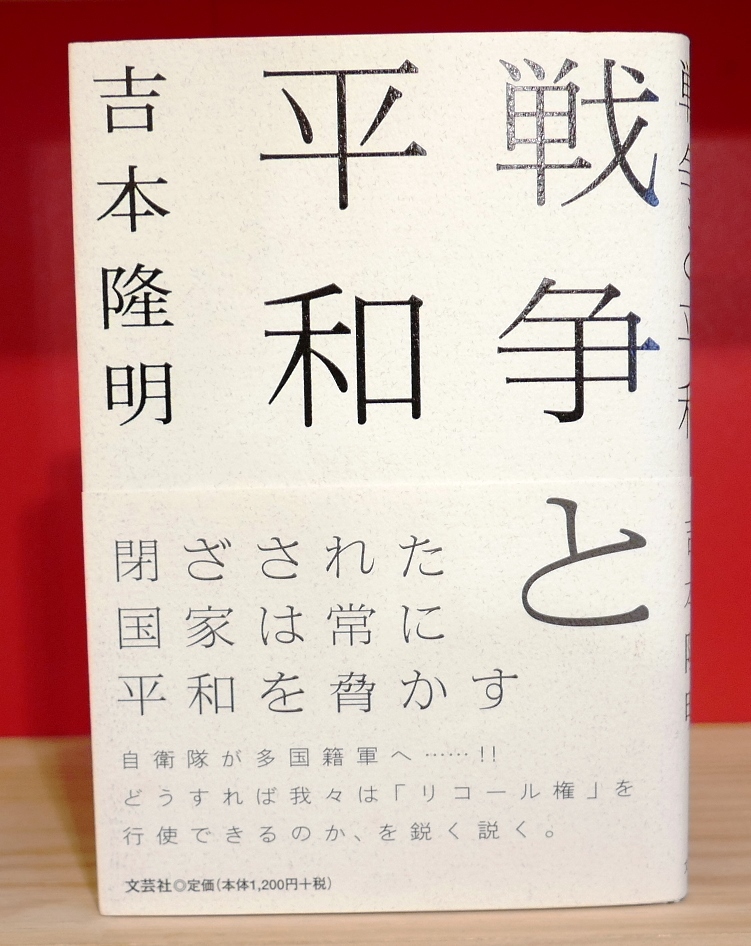 戦争と
平和
吉本隆明
閉ざされた
国家は常に
平和を脅かす
自衛隊が多国籍軍へ……!!
どうすれば我々は「リコール権」を
行使できるのか、を鋭く説く。
文芸社◎定価(本体1,200円+税)
戦争と平和
吉本隆明